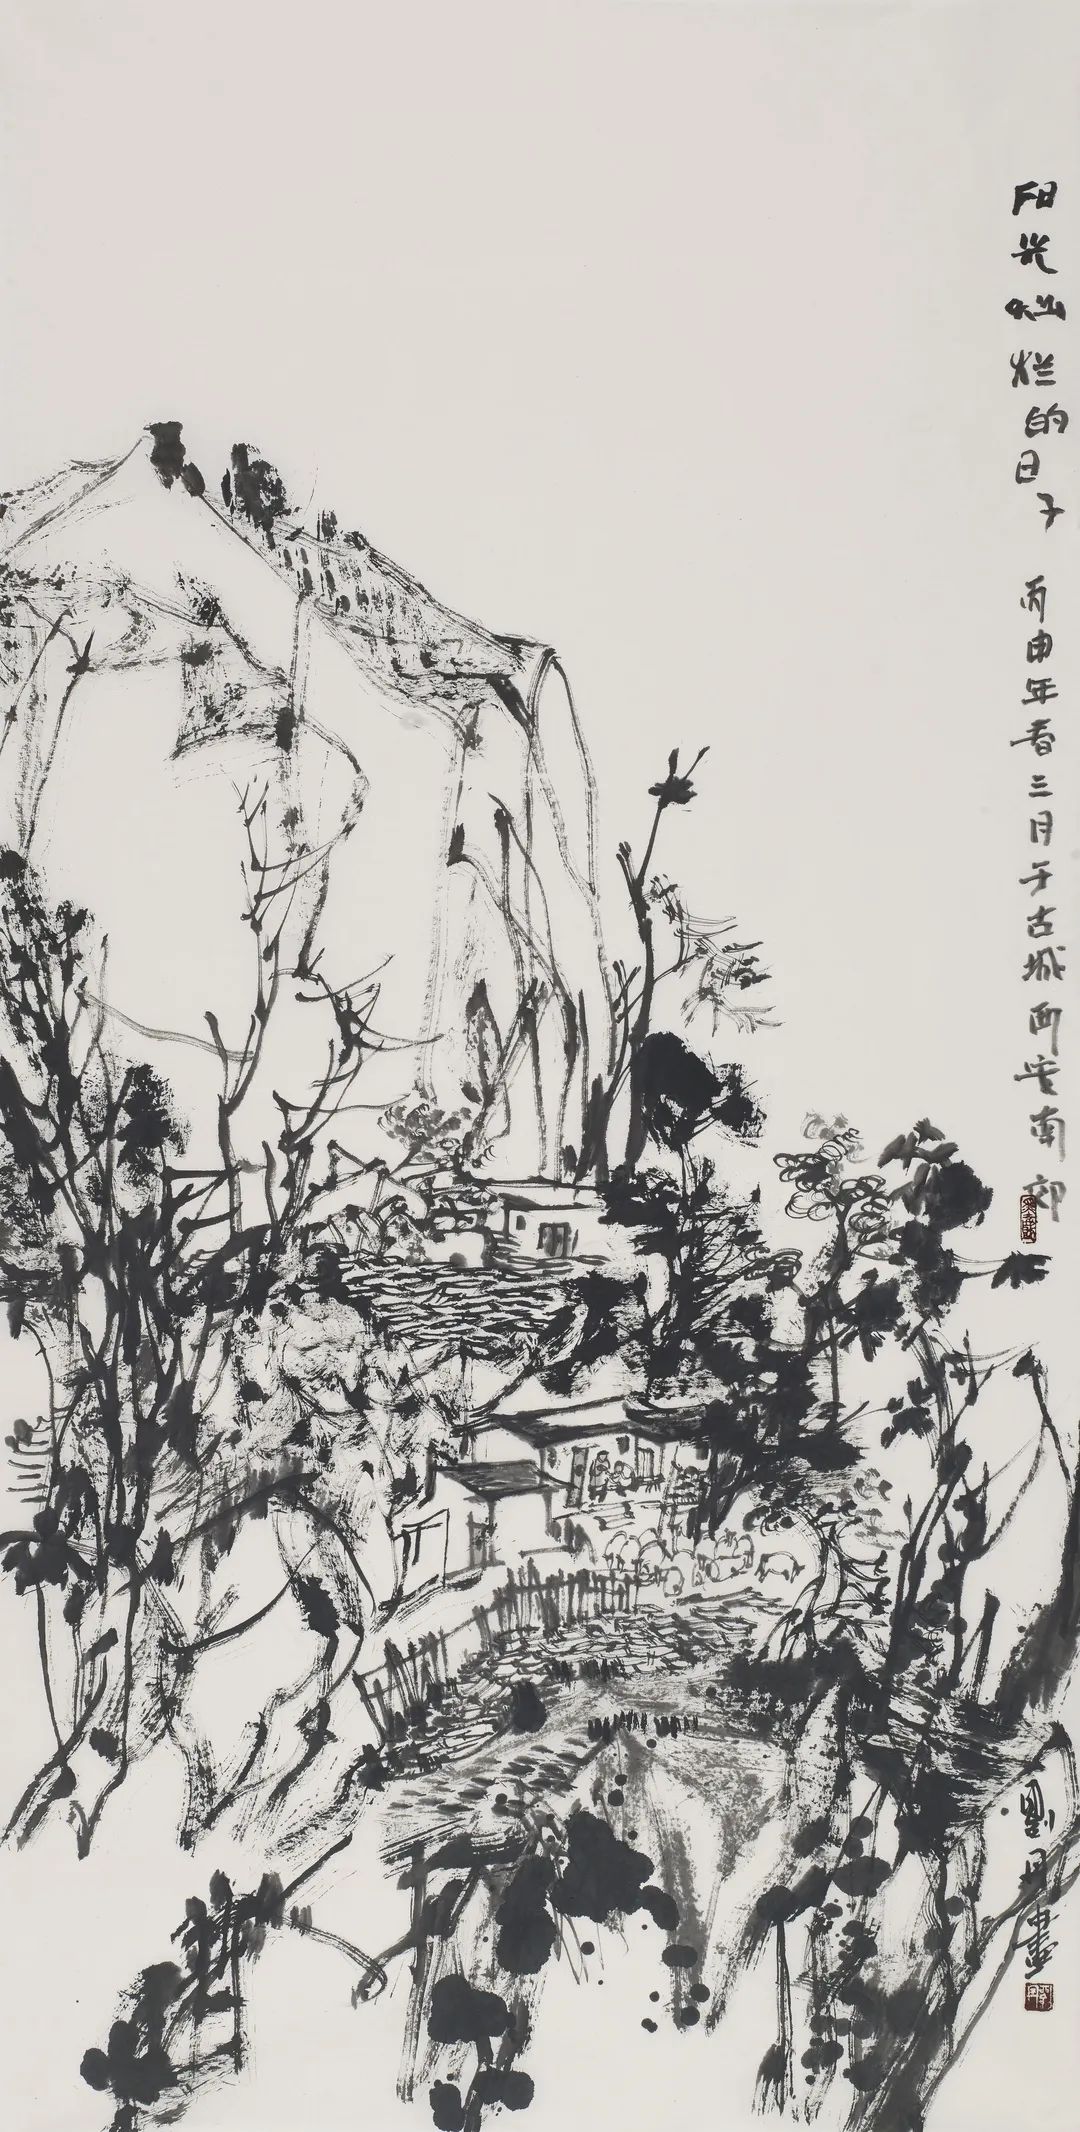 阳光灿烂的日子 丙申年春三月于古城西安南郊
劉丹畫